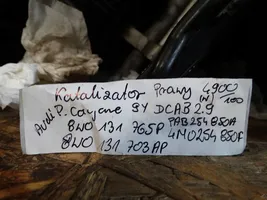 Katalizator Prawy 4900
W 100
Audi P. Cayene 9Y DCAB 2.9
8W0 131 765P PAB254850A
8W0 131 703AP 4M0254850F